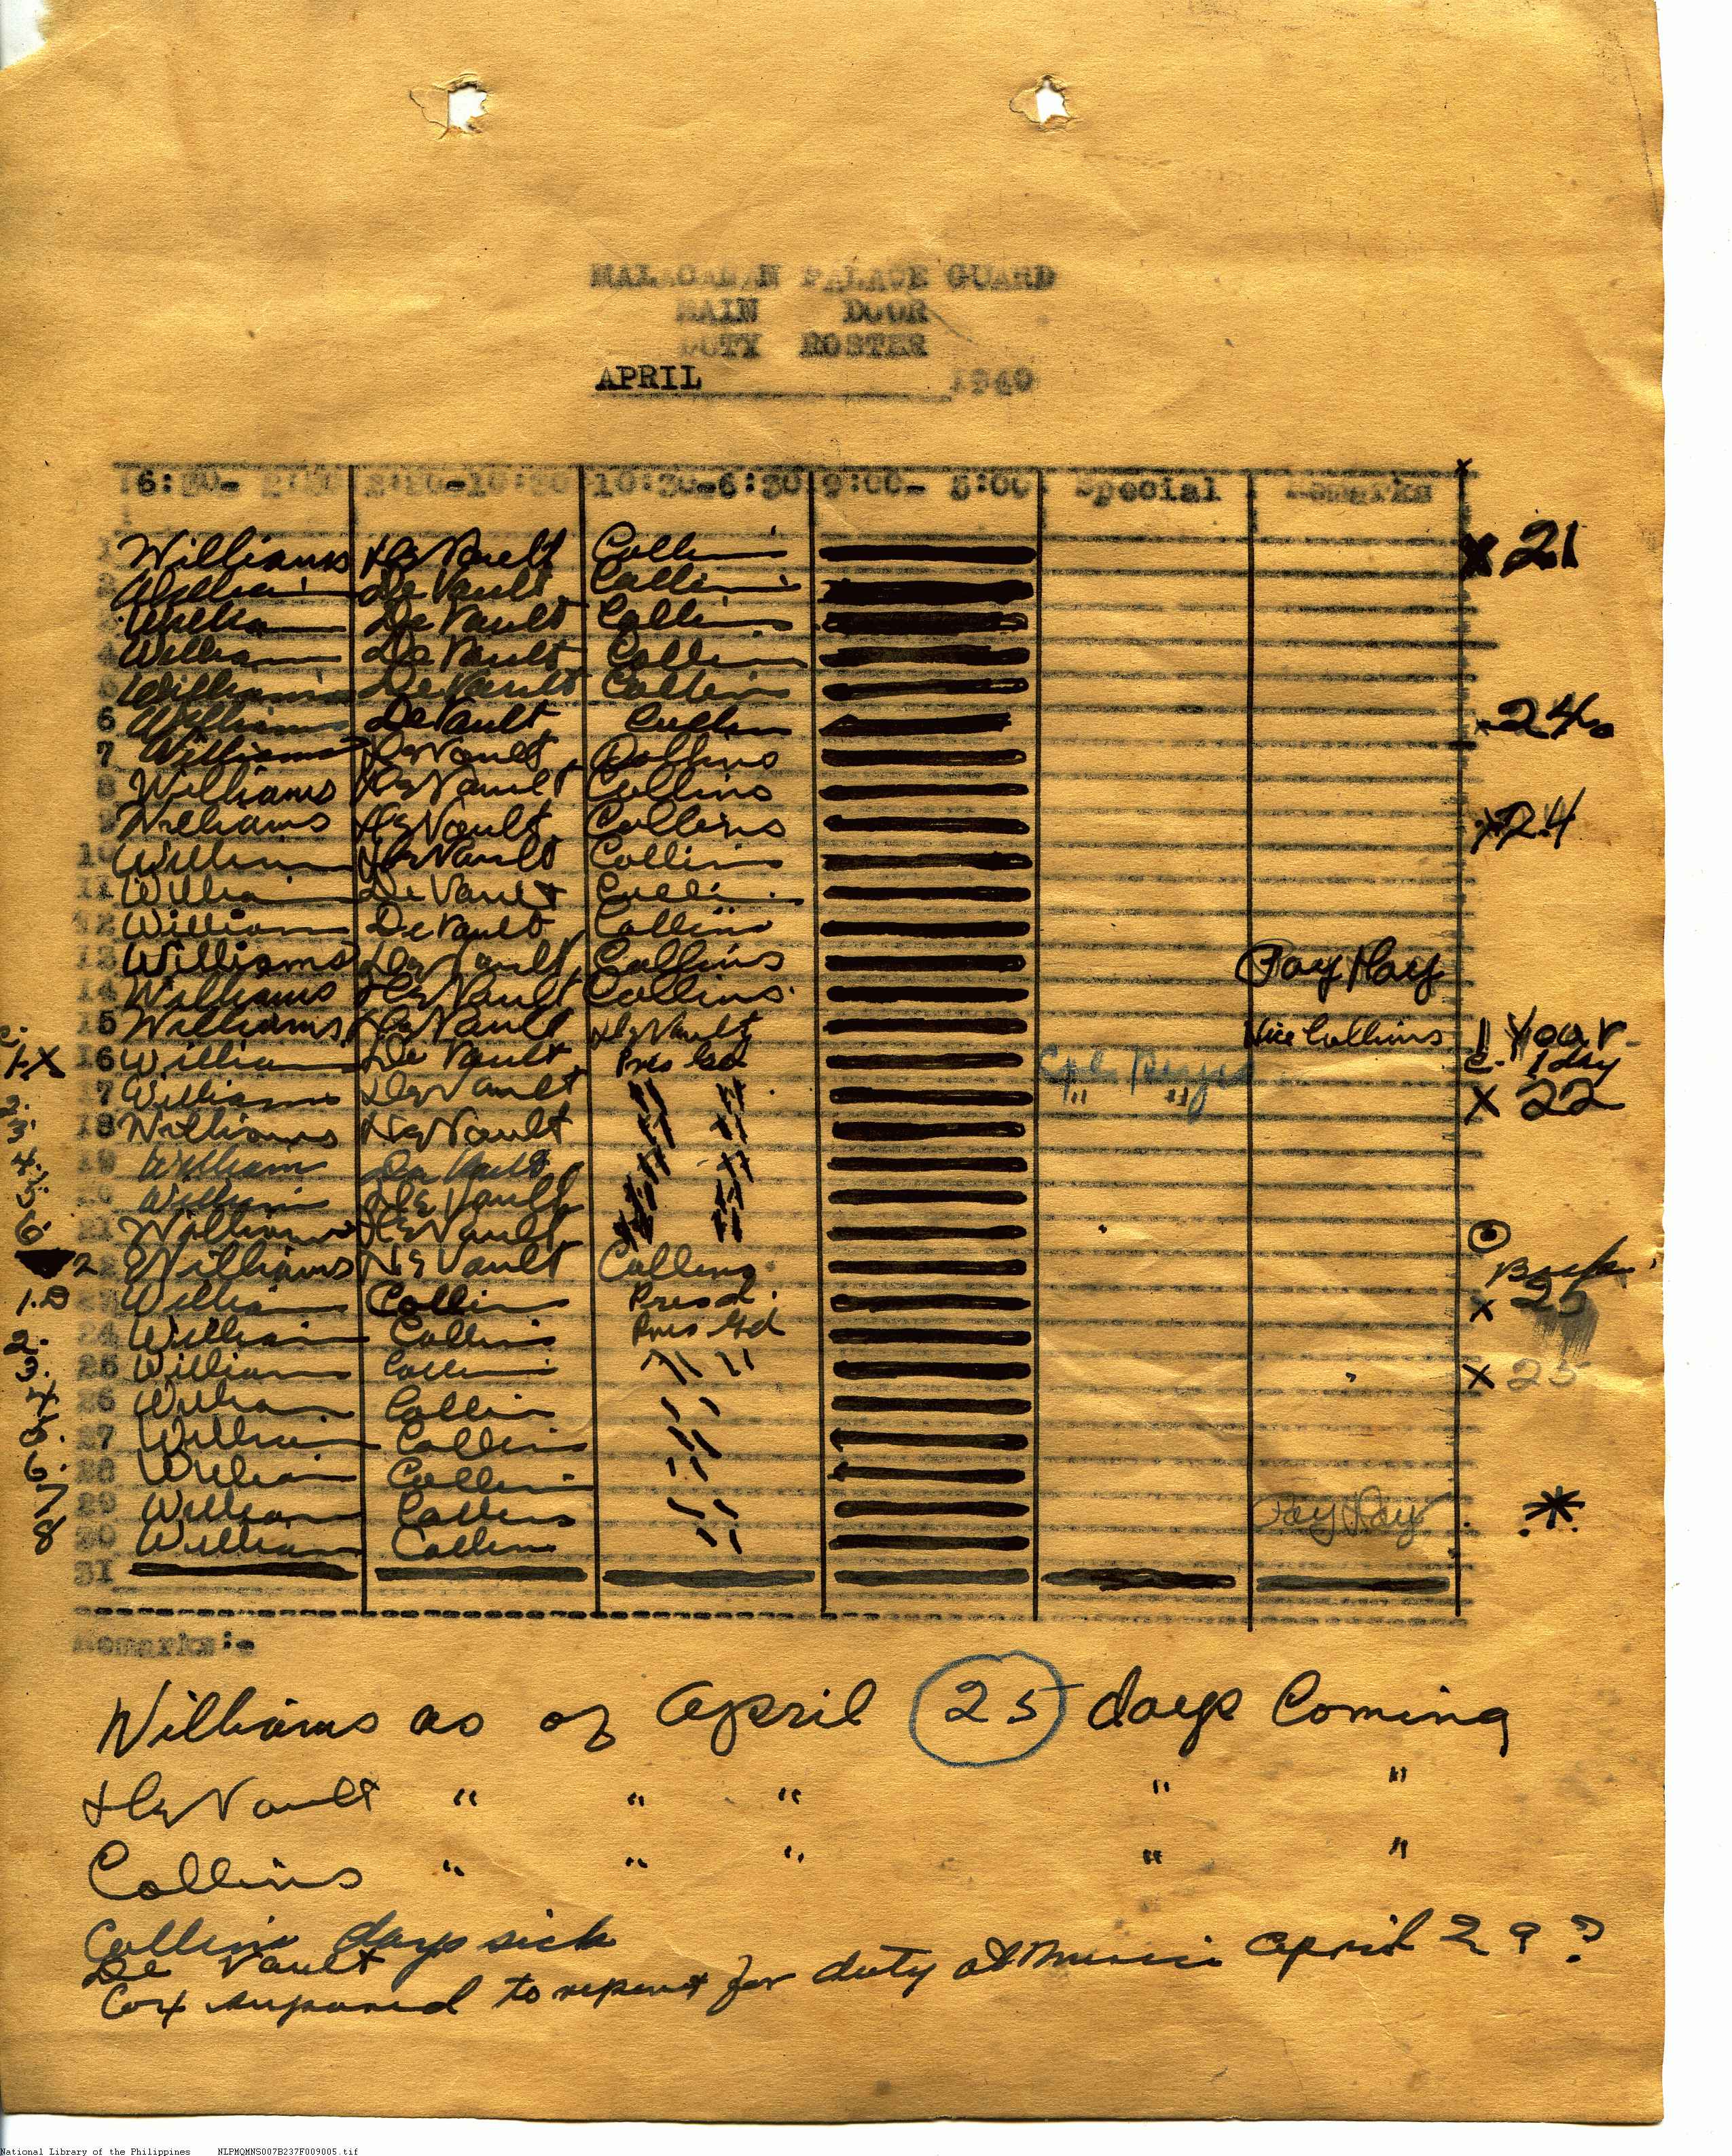 MALACAÑAN PALACE GUARD
MAIN DOOR
DUTY ROSTER
APRIL 1940
6:30- 2:30 2:30-10:30 10:30-6:30 9:00- 5:00 Special Remarks
1 Williams DeVault Collins x 21
2 Williams DeVault Collins
3 William De Vault Collins
4 William De Vault Collins
5 Williams DeVault Collins
6 Williams DeVault Collins x 24
7 Williams DeVault Collins
8 Williams DeVault Collins
9 Williams DeVault Collins x 24
10 William DeVault Collins
11 William De Vault Collins
12 William DeVault Collins
13 Williams DeVault Collins Pay Day
14 Williams DeVault Collins
15 Williams DeVault DeVault Vice Collins 1 Year
1-X 16 William De Vault Pres Gd Cpl. Reyes c. 1 day
2. 17 Williams DeVault " " " " X 22
3. 18 Williams DeVault " "
4. 19 William De Vault " "
5. 20 William De Vault " "
6. 21 Williams DeVault " "
22 Williams DeVault Collins Back
1. 23 William Collins Presd. x 25
2. 24 William Collins Pres Gd
3. 25 William Collins " " X 25
4 26 William Collins " "
5. 27 William Collins " "
6. 28 William Collins " "
7 29 William Collins " " Pay Day *
8 30 William Collins " "
31
Remarks:-
Williams as of April 25 days Coming
DeVault " " " " "
Collins " " " " "
Collins days sick
De Vault
Cox supposed to report for duty at April 29?
National Library of the Philippines NLPMQMNS007B237F009005.tif